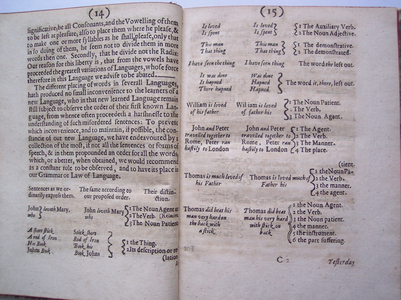 (14)
Significative, be all Consonants, and the Vowelling of them
to be left as pleasure, also to place them where he please, &
to make one or more syllables as he shall please, only that
in so doing of them, he seem not to divide them in more
words then one. Secondly, that he divide not the Radical.
Our reason for this liberty is, that from the vowels have
proceeded the greatest variations of Languages, whose force
therefore in this Language we advise to be abated.
The different placing of words in several Languages,
hath produced no small inconvenience to the learners of a
new Language, who in that new learned Language remain
still subject to observe the order of their first known Lan-
guage, from whence often proceeds a harshnesse to the
understanding of such misordered sentences. To prevent
which inconvenience, and to maintain, if possible, the con-
stancie of our new Language, we have endeavoured by a
collection of the most, if not all the sentences or forms of
speech, & in them propounded an order for all the words,
which, or a better, when obtained, we would recommend
as a constant rule to be observed, and to have its place in
our Grammar or Law of Language.
Sentences as we or- The same according to Their distin-
dinarily express them. our proposed order. ction.
John loveth Mary, John loveth Mary 1 The Noun Agent
who who 2 The Verb.
3 The Noun Patient
A stare Black Black stare
A rod of Iron Rod of Iron
His Book Book his 1 the Thing.
Johns Book Book, John 2 Its description or re-
(lation
(15)
Is loved Is loved 1 The Auxiliary Verb.
Is good Is good 2 The Noun Adjective.
Thou man Thou man 1 The demonstrative.
That thing That thing 2 The demonstrated.
I have seen the thing I have seen thing The word the left out.
Is was done Is was done
It hapned Hapned The word it, there, left out.
There hapned Hapned
William is loved William is loved 1 The Noun Patient.
of his father of his father 2 The Verb.
3 The Noun Agent.
John and Peter John and Peter 1 The Agent.
travelled together to travelled together to 2 The Verb.
Rome, Peter ran Rome, Peter ran 3 The Manner.
hastily to London hastily to London 4 The place.
(tient.
Thomas is much loved of Thomas is loved much 1 The Noun Pa-
his Father of his Father 2 the Verb.
3 the manner.
4 the agent.
Thomas did beat his Thomas did beat his 1 the Noun Agent.
man very hard on man his very hard 2 the Verb.
the back with with stick on 3 the Noun patient.
a stick. back 4 the manner.
5 the instrument.
6 the part suffering.
C 2 Yesterday